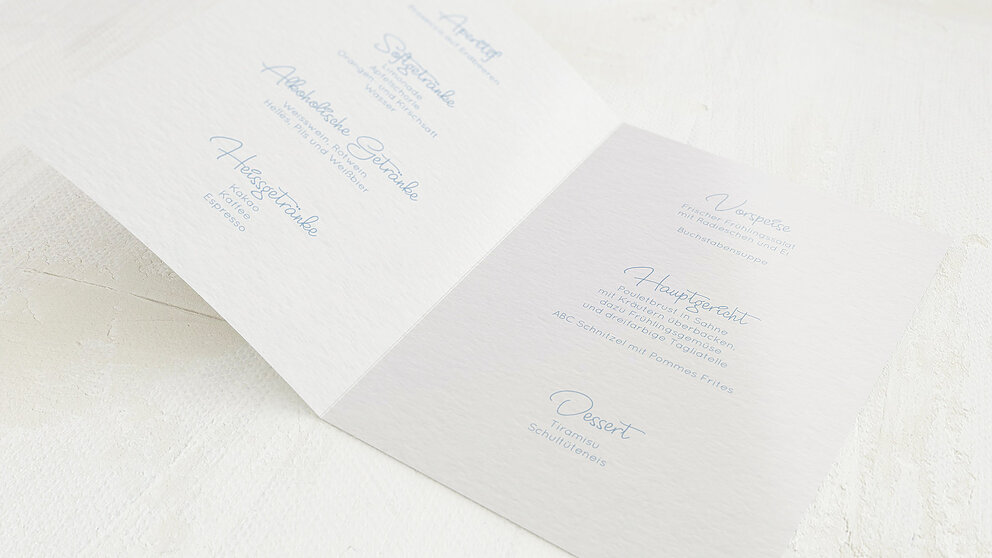 Aperitif
Softgetränke
Limonade
Apfelschorle
Orangen- und Kirschsaft
Wasser
Alkoholische Getränke
Weisswein, Rotwein
Helles, Pils und Weißbier
Heissgetränke
Kakao
Kaffee
Espresso
Vorspeise
Frischer Frühlingssalat
mit Radieschen und Ei
Buchstabensuppe
Hauptgericht
Pouletbrust in Sahne
mit Kräutern überbacken
dazu Frühlingsgemüse
und dreifarbige Tagliatelle
ABC Schnitzel mit Pommes Frites
Dessert
Tiramisu
Schultüteneis